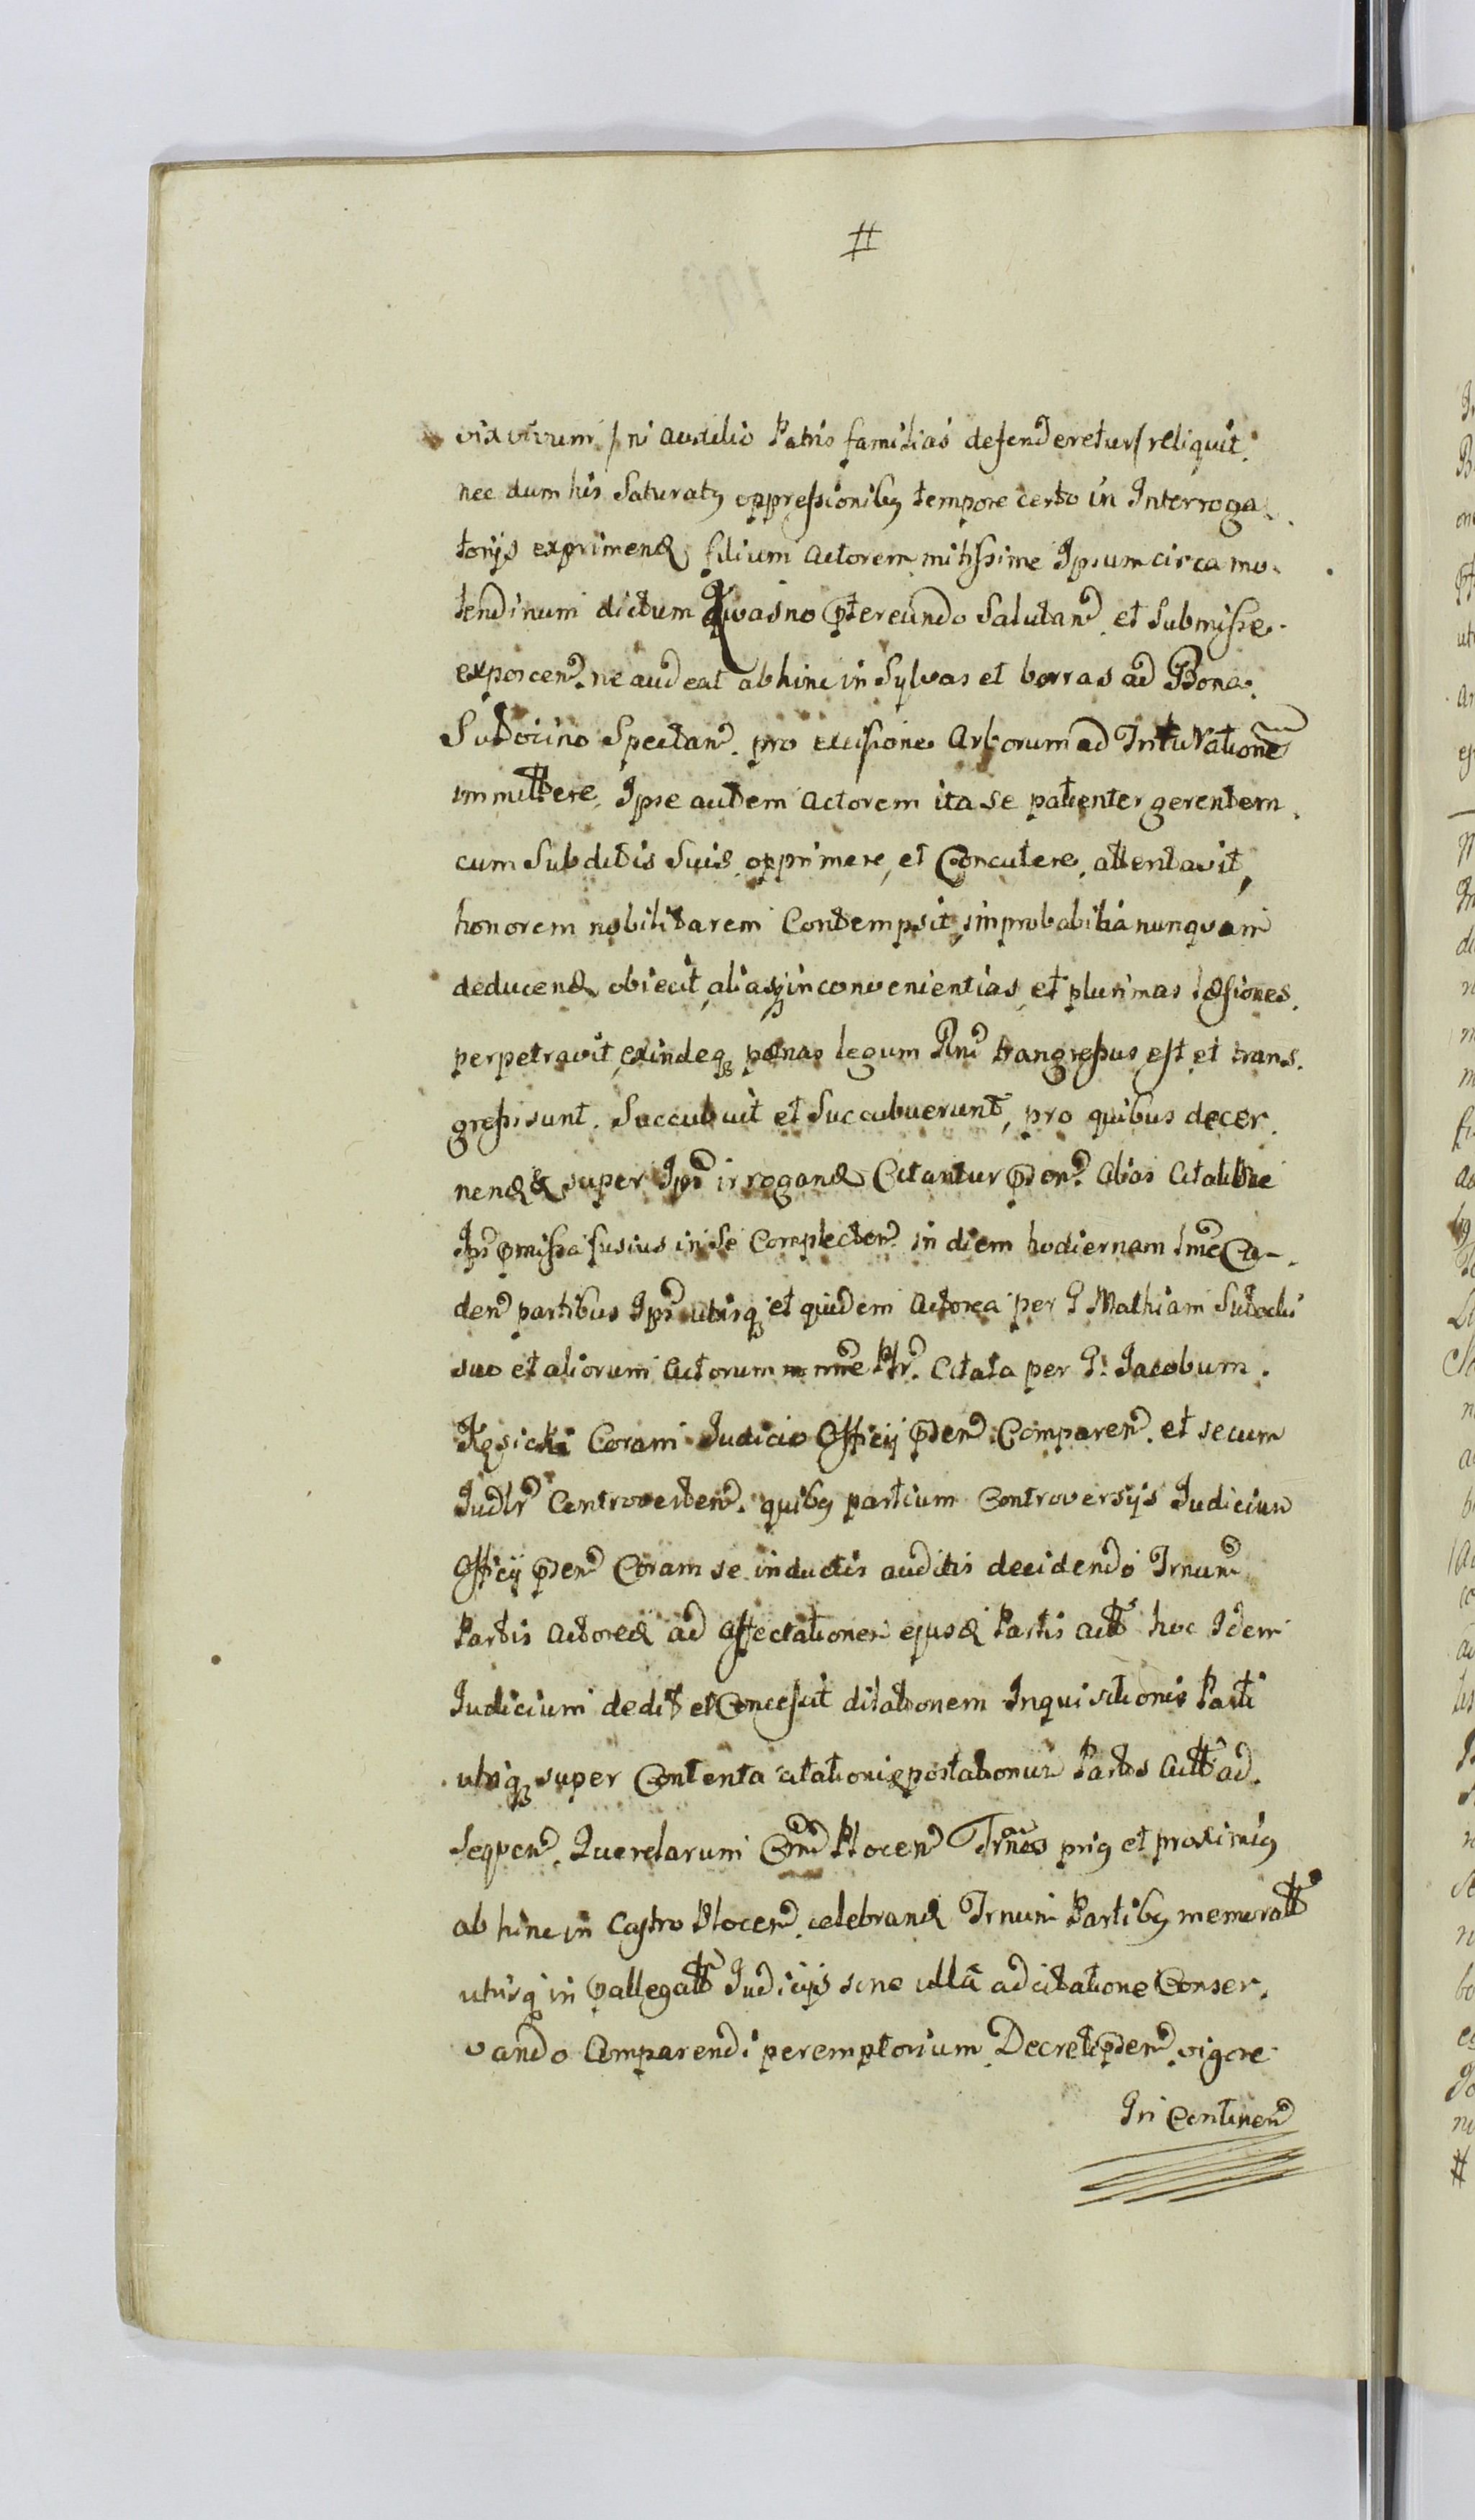 #
vix vivum / ni auxilio Patris familias defenderetur / reliquit,
nec dum his Saturatq oppreſsionibq tempore certo in Interroga
torijs exprimend filium actorem mitiſsime Ipsum circa mo
lendinum dictum Kwasno pptereundo Salutan et Submiſse
exposcen. ne audeat abhinc in Sylvas et borras ad Bona
Sudoino Spectan. pro exciſione Arborum ad
immittere, Ipse autem actorem ita se patienter gerentem
cum Subditis Suis opprimere, et Concutere, attentavit,
honorem nobilitarem Contempsit, improbabilia nunquam
deducend, obiecit, aliasq inconvenientias, et plurimas læsiones
perpetravit, exindeq pænas legum Rni trangreſsus est et trans
greſsi sunt. Succubuit et Succubuerunt, pro quibus decer
nend & super Ips irrogand Citantur pden. Alias Citatione
Ips pmiſsa fusius in se Complecten in diem hodiernam lme Ca-
den partibus Ips utrisq et quidem Actorea per G Mathiam
suo et aliorum Actorum nne Ptr. Citata per G. Jacobum
Kęsicki Coram Judicio Officij pden Comparen. et secum
Judlr Controverten. quibq partium Controversijs Judicium
Officij pden Coram se inductis auditis decidendo Trnum
Partis Actoreæ ad affectationem ejusd Partis actt hoc Idem
Judicium dedit et Conceſsit dilationem Inquisitionis Parti
utriq super Contenta citationis portationum Partis Actt ad
Sequen. Querelarum Crn Plocen Trnos priq et proximiq
ab hinc in Castro Plocen. celebrand Trnum Partibq memoratt
utrisq in pallegatt Judicijs sine ulla adcitatione Conser
vando Comparendi peremptorium Decreti pden vigore
In Continen